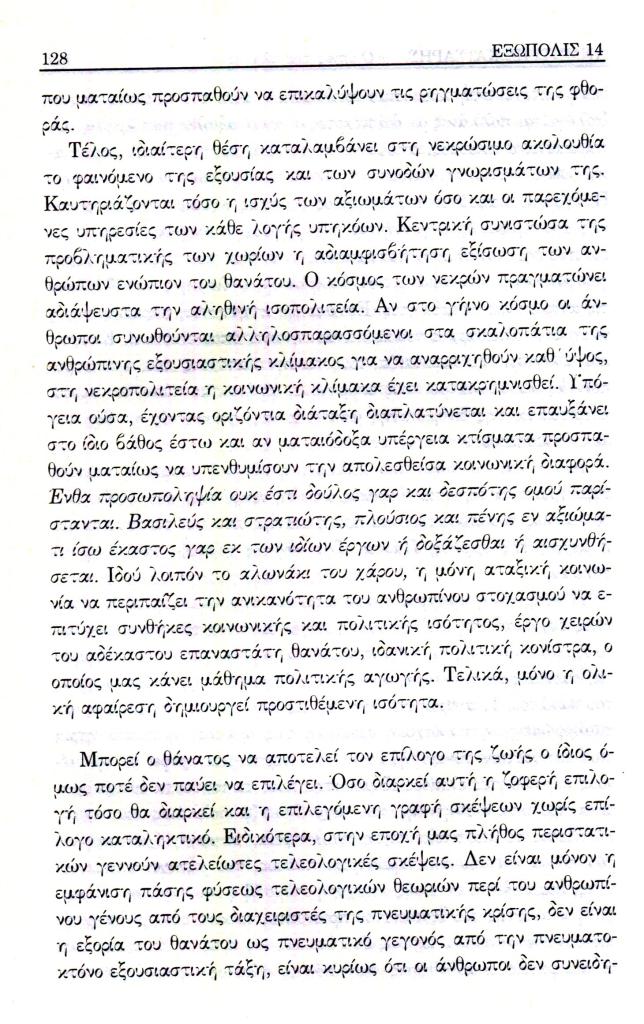 128
ΕΞΩΠΟΛΙΣ 14
που ματαίως προσπαθούν να επικαλύψουν τις ρηγματώσεις της φθο-
ράς.
Τέλος, ιδιαίτερη θέση καταλαμβάνει στη νεκρώσιμο ακολουθία
το φαινόμενο της εξουσίας και των συνοδών γνωρισμάτων της.
Καυτηριάζονται τόσο η ισχύς των αξιωμάτων όσο και οι παρεχόμε-
νες υπηρεσίες των κάθε λογής υπηκόων. Κεντρική συνιστώσα της
προβληματικής των χωρίων η αδιαμφισβήτηση εξίσωση των αν-
θρώπων ενώπιον του θανάτου. Ο κόσμος των νεκρών πραγματώνει
αδιάψευστα την αληθινή ισοπολιτεία. Αν στο γήινο κόσμο οι άν-
θρωποι συνωθούνται αλληλοσπαρασσόμενοι στα σκαλοπάτια της
ανθρώπινης εξουσιαστικής κλίμακος για να αναρριχηθούν καθ΄ύψος,
στη νεκροπολιτεία η κοινωνική κλίμακα έχει κατακρημνισθεί. Υπό-
γεια ούσα, έχοντας οριζόντια διάταξη διαπλατύνεται και επαυξάνει
στο ίδιο βάθος έστω και αν ματαιόδοξα υπέργεια κτίσματα προσπα-
θούν ματαίως να υπενθυμίσουν την απολεσθείσα κοινωνική διαφορά.
Ένθα προσωποληψία ουκ έστι δούλος γαρ και δεσπότης ομού παρί-
στανται. Βασιλεύς και στρατιώτης, πλούσιος και πένης εν αξιώμα-
τι ίσω έκαστος γαρ εκ των ιδίων έργων ή δοξάζεσθαι ή αισχυνθή-
σεται. Ιδού λοιπόν το αλωνάκι του χάρου, η μόνη αταξική κοινω-
νία να περιπαίζει την ανικανότητα του ανθρωπίνου στοχασμού να ε-
πιτύχει συνθήκες κοινωνικής και πολιτικής ισότητος, έργο χειρών
του αδέκαστου επαναστάτη θανάτου, ιδανική πολιτική κονίστρα, ο
οποίος μας κάνει μάθημα πολιτικής αγωγής. Τελικά, μόνο η ολι-
κή αφαίρεση δημιουργεί προστιθέμενη ισότητα.
Μπορεί ο θάνατος να αποτελεί τον επίλογο της ζωής ο ίδιος ό-
μως ποτέ δεν παύει να επιλέγει. Όσο διαρκεί αυτή η ζοφερή επιλο-
γή τόσο θα διαρκεί και η επιλεγόμενη γραφή σκέψεων χωρίς επί-
λογο καταληκτικό. Ειδικότερα, στην εποχή μας πλήθος περιστατι-
κών γεννούν ατελείωτες τελεολογικές σκέψεις. Δεν είναι μόνον η
εμφάνιση πάσης φύσεως τελεολογικών θεωριών περί του ανθρωπί-
νου γένους από τους διαχειριστές της πνευματικής κρίσης, δεν είναι
η εξορία του θανάτου ως πνευματικό γεγονός από την πνευματο-
κτόνο εξουσιαστική τάξη, είναι κυρίως ότι οι άνθρωποι δεν συνειδη-